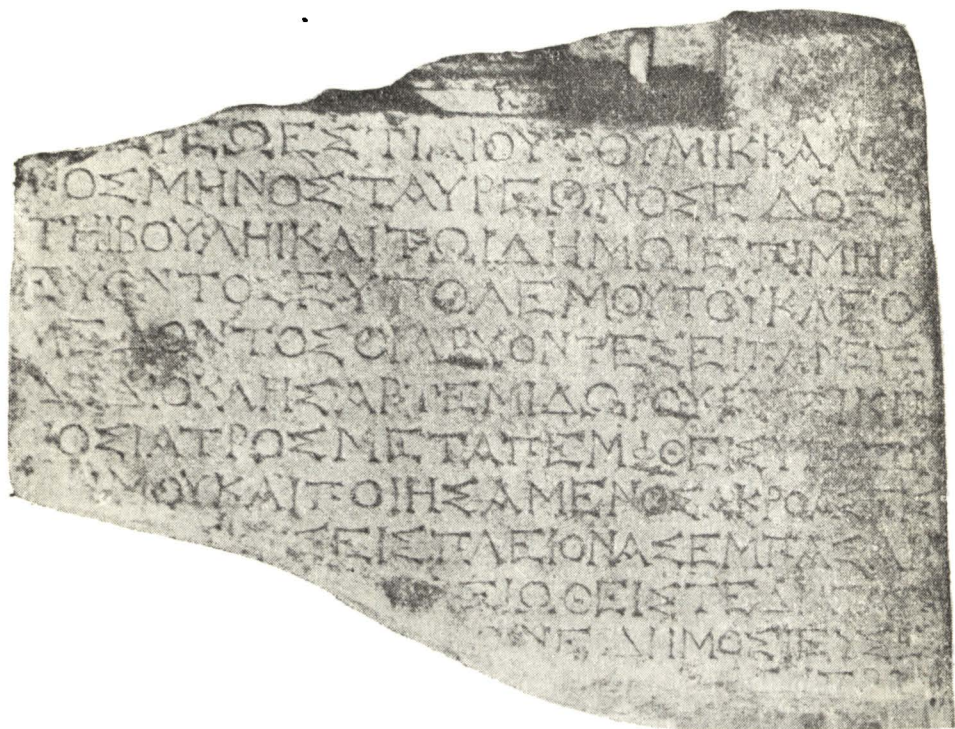 ΕΩΕΣΤΙΑΙΟΥΤΟΥΜΙΚΚΑΛ
ΝΟΣΜΗΝΟΣΤΑΥΡΕΩΝΟΣΕΔΟΞΕ
ΤΗΙΒΟΥΛΗΙΚΑΙΤΩΙΔΗΜΩΙΕΠΙΜΗΝ
ΕΥΟΝΤΟΣΕΥΠΟΛΕΜΟΥΤΟΥΚΛΕΟ
ΟΝΤΟΣΟΙΑΡΧΟΝΤΕΣΕΙΠΑΝΕΠΕΙ
ΔΙΟΚΛΗΣΑΡΤΕΜΙΔΩΡΟΥΚΥΖΙΚΗ
ΟΣΙΑΤΡΟΣΜΕΤΑΠΕΜΦΘΕΙΣΥΠΟΤΕ
ΜΟΥΚΑΙΠΟΙΗΣΑΜΕΝΟΣΑΚΡΟΑΣΕΙΣ
ΕΙΣΠΛΕΙΟΝΑΣΕΜΠΑΣΙ
ΞΙΩΘΕΙΣΤΕΔΙ
ΕΔΗΜΟΣΙΕΥΣΕ